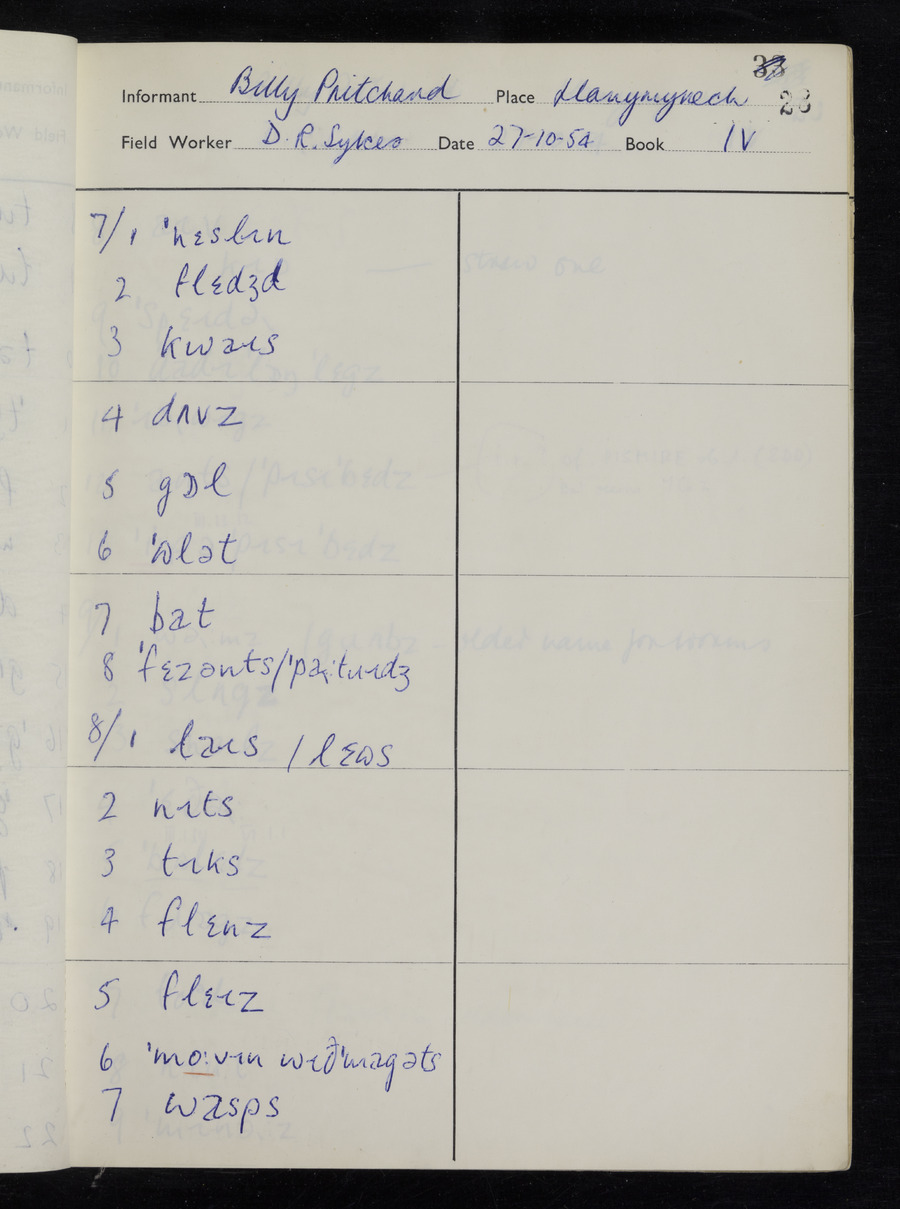 33
Informant Billy Pritchard Place Llanymynech 28
Field Worker D. R. Sykes Date 27-10-54 Book IV
7/1 ˈnɛslɪn
2 flɛdʒd
3 kwaɪs
4 dʌvz
5 gɒl
6 ˈɷlət
7 bat
8 ˈfɛzənts/ˈpa:tɹɪdʒ
8/1 laɪs / lɛɷs
2 nɪts
3 tɪks
4 flɛnz
5 flɛɪz
6 ˈmo:vɪn wɪðˈmagəts
7 wasps